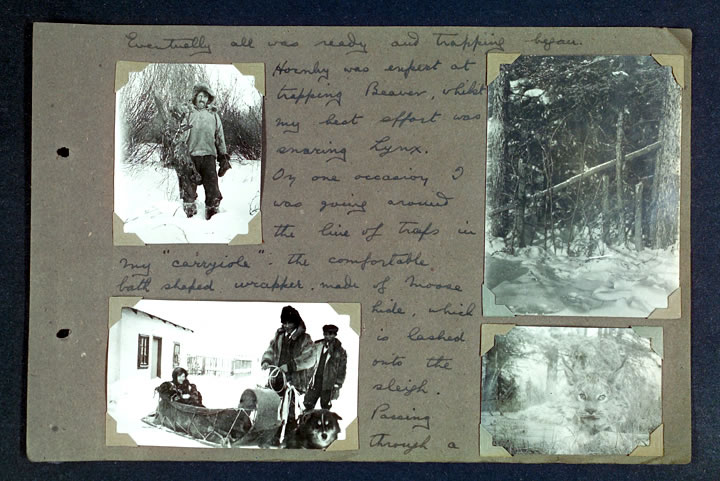 Eventually all was ready and trapping began.
Hornby was expert at
trapping Beaver, whilst
my best effort was
snaring Lynx.
On one occasion I
was going around
the line of traps in
my "carryiole" - the comfortable,
bath shaped wrapper, made of moose
hide, which
is lashed
onto the
sleigh.
Passing
through a